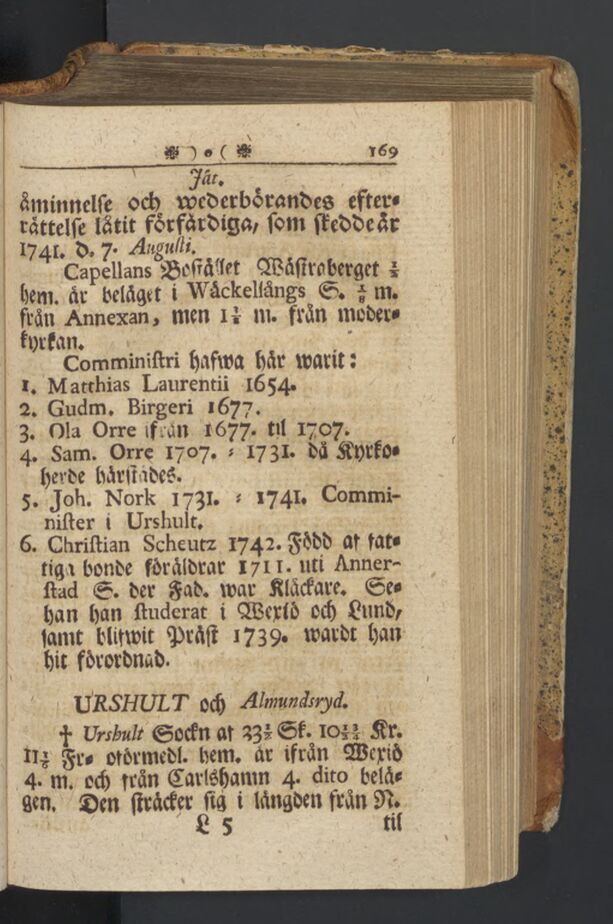 ) o ( 169
Jät.
åminnelse och wederbörandes efter-
rättelse låtit förfärdiga, som skedde år
1741. d. 7. Augusti.
Capellans Bostället Wästraberget ½
hem. är beläget i Wäckellångs S. ⅛ m.
från Annexan, men 1½ m. från moder-
kyrkan.
Comministri hafwa här warit:
1. Matthias Laurentii 1654.
2. Gudm. Birgeri 1677.
3. Ola Orre ifrån 1677. til 1707.
4. Sam. Orre 1707. = 1731. då Kyrko-
herde härstädes.
5. Joh. Nork 1731. = 1741. Commi-
nister i Urshult.
6. Christian Scheutz 1742. Född af fat-
tiga bonde föräldrar 1711. uti Anner-
stad S. der Fad. war Kläckare. Se-
han han studerat i Wexiö och Lund,
samt blifwit Präst 1739. wardt han
hit förordnad.
URSHULT och Almundsryd.
† Urshult Sockn af 33½ Sk. 10 Kr.
Fr- oförmedl. hem. är ifrån Wexiö
4. m. och från Carlshamn 4. dito belä-
gen. Den sträcker sig i längden från N.
L 5 til